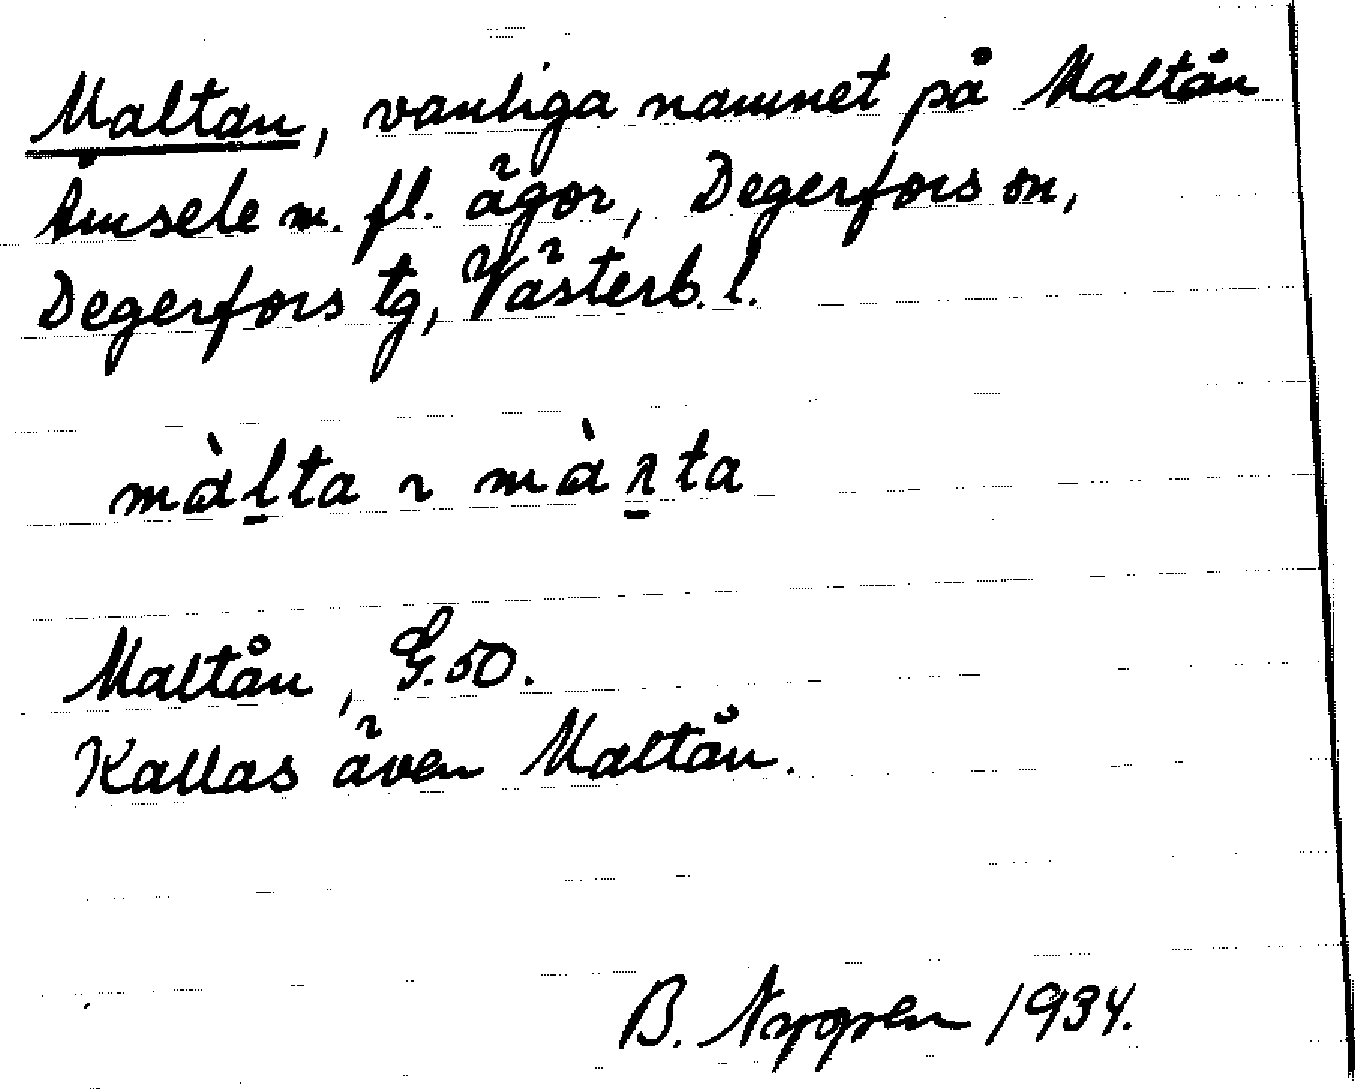 Maltan, vanliga namnet på Maltån
Åmsele m. fl. ägor, Degerfors sn,
Degerfors tg, Västerb. l.
màl̠ta ~ màṉta
Maltån, G. 50.
Kallas även Maltån.
B. Nygren 1934.